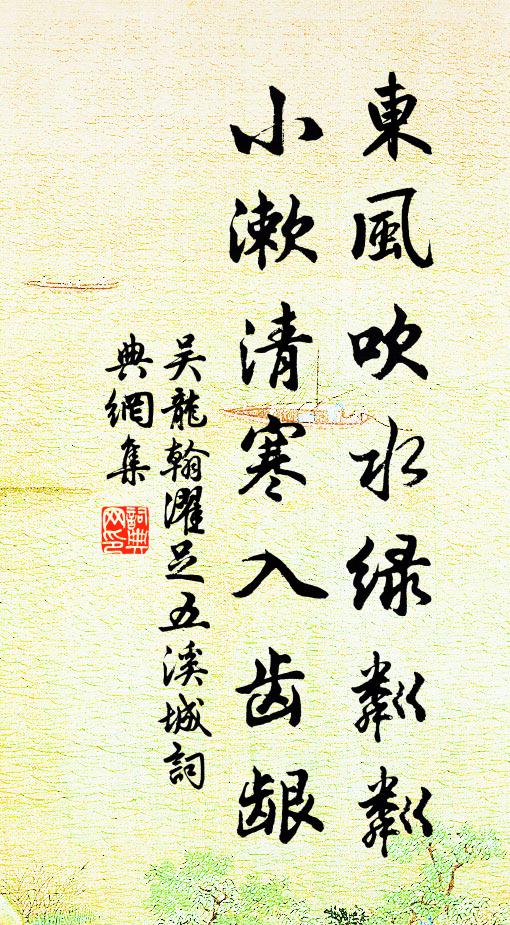 東風吹水绿粼粼
小漱清寒入齿龈
吴龍翰濯足五溪城詞
典網集
詞典
网印